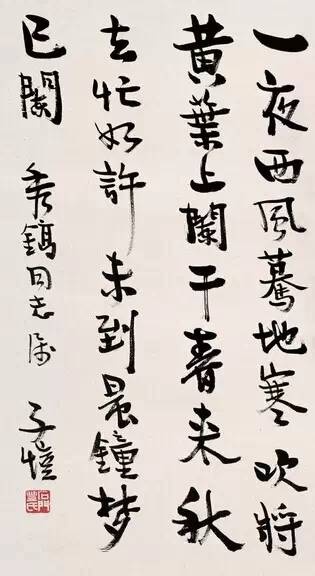 一夜西風驀地寒吹將
黄葉上闌干春来秋
去忙如許未到晨鐘夢
已闌
同志属
子愷